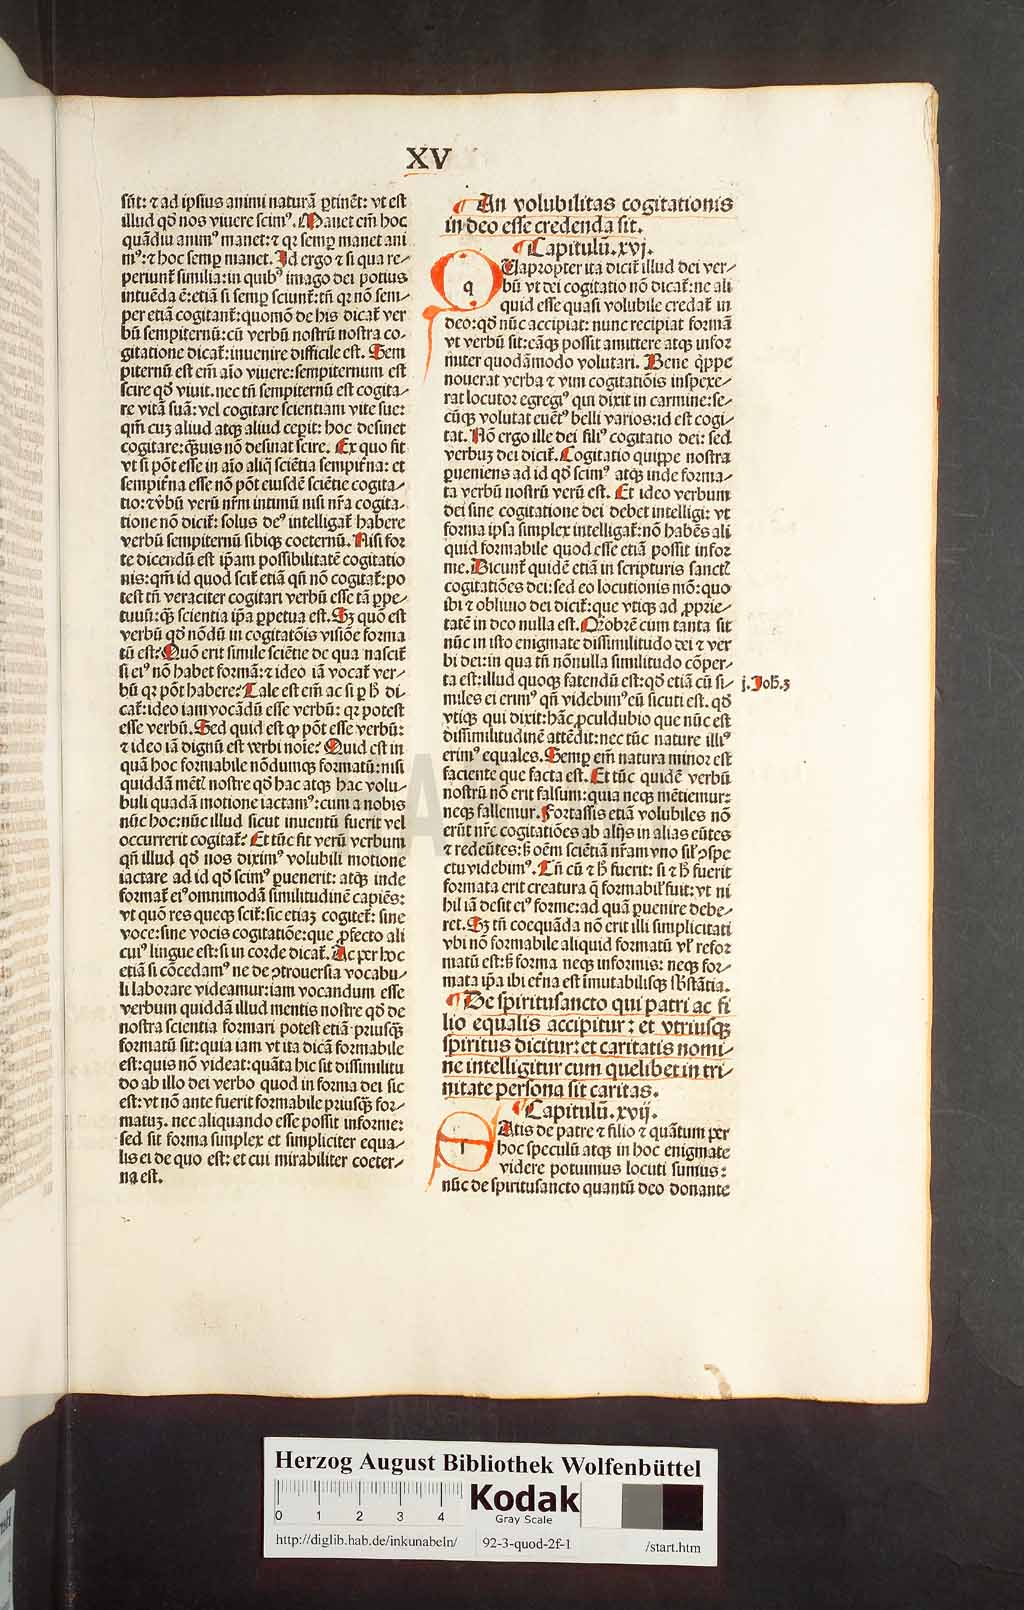 XV
sūt: ⁊ ad ipsius animi naturā ꝑtinēt: vt est
illud qd̄ nos viuere scimꝰ. Manet em̄ hoc
quādiu animꝰ manet: ⁊ qꝛ semꝑ manet ani
mꝰ: ⁊ hoc semꝑ manet. Id ergo ⁊ si qua re⸗
periunt̃ similia: in quibꝰ imago dei potius
intuēda ē: etiā si semꝑ sciunt̃: tn̄ qꝛ nō sem⸗
per etiā cogitant̃: quomō de his dicat̃ ver
bū sempiternū: cū verbū nostrū nostra co⸗
gitatione dicat̃: inuenire difficile est. Sem
piternū est em̄ aīo viuere: sempiternum est
scire qd̄ viuit. nec tn̄ sempiternū est cogita⸗
re vitā suā: vel cogitare scientiam vite sue:
qm̄ cuꝫ aliud atqꝫ aliud ceꝑit: hoc desinet
cogitare: q̄uis nō desinat scire. Ex quo fit
vt si pōt esse in aīo aliq̄ sciētia sempit̃na: et
sempit̃na esse nō pōt eiusdē sciētie cogita⸗
tio: ⁊ v̄bū verū nr̄m intimū nisi nr̄a cogita⸗
tione nō dicit̃: solus deꝰ intelligat̃ habere
verbū sempiternū sibiqꝫ coeternū. Nisi for
te dicendū est ip̄am possibilitatē cogitatio
nis: qm̄ id quod scit̃ etiā qn̄ nō cogitat̃: po
test tn̄ veraciter cogitari verbū esse tā ꝑpe⸗
tuum: q̄ꝫ scientia ip̄a ꝑpetua est. Sꝫ quō est
verbū qd̄ nōdū in cogitatōis visiōe forma
tū est? Quō erit simile sciētie de qua nascit̃
si eiꝰ nō habet formā: ⁊ ideo iā vocat̃ ver⸗
bū qꝛ pōt habere? Tale est em̄ ac si ꝑ h̄ di⸗
cat̃: ideo iam vocādū esse verbū: qꝛ potest
esse verbū. Sed quid est qꝙ pōt esse verbū:
⁊ ideo iā dignū est verbi noīe? Quid est in
quā hoc formabile nōdumqꝫ formatū: nisi
quiddā mētꝭ nostre qd̄ hac atqꝫ hac volu⸗
buli quadā motione iactamꝰ: cum a nobis
nūc hoc: nūc illud sicut inuentū fuerit vel
occurrerit cogitat̃? Et tūc fit verū verbum
qn̄ illud qd̄ nos diximꝰ volubili motione
iactare ad id qd̄ scimꝰ ꝑuenerit: atqꝫ inde
format̃ eiꝰ omnimodā similitudinē capiēs:
vt quō res queqꝫ scit̃: sic etiaꝫ cogitet̃: sine
voce: sine vocis cogitatiōe: que ꝓfecto ali
cuiꝰ lingue est: si in corde dicat̃. Ac per hoc
etiā si cōcedamꝰ ne de ꝯtrouersia vocabu⸗
li laborare videamur: iam vocandum esse
verbum quiddā illud mentis nostre qd̄ de
nostra scientia formari potest etiā priusq̄ꝫ
formatū sit: quia iam vt ita dicā formabile
est: quis nō videat: quāta hic sit dissimilitu
do ab illo dei verbo quod in forma dei sic
est: vt nō ante fuerit formabile priusq̄ꝫ for⸗
matuꝫ. nec aliquando esse possit informe:
sed sit forma simplex et simpliciter equa⸗
lis ei de quo est: et cui mirabiliter coeter⸗
na est.
¶ An volubilitas cogitationis
in deo esse credenda sit.
¶ Capitulū.xvj.
q Uapropter ita dicit̃ illud dei ver⸗
bū vt dei cogitatio nō dicat̃: ne ali
quid esse quasi volubile credat̃ in
deo: qd̄ nūc accipiat: nunc recipiat formā
vt verbū sit: eāqꝫ possit amittere atqꝫ infor
miter quodāmodo volutari. Bene q̄ppe
nouerat verba ⁊ vim cogitatiōis inspexe⸗
rat locutor egregiꝰ qui dixit in carmine: se⸗
cūqꝫ volutat euētꝰ belli varios: id est cogi
tat. Nō ergo ille dei filiꝰ cogitatio dei: sed
verbuꝫ dei dicit̃. Cogitatio quippe nostra
ꝑueniens ad id qd̄ scimꝰ atqꝫ inde forma⸗
ta verbū nostrū verū est. Et ideo verbum
dei sine cogitatione dei debet intelligi: vt
forma ipsa simplex intelligat̃: nō habēs ali
quid formabile quod esse etiā possit infor
me. Dicunt̃ quidē etiā in scripturis sanctꝭ
cogitatiōes dei: sed eo locutionis mō: quo
ibi ⁊ obliuio dei dicit̃: que vtiqꝫ ad ꝓprie⸗
tatē in deo nulla est. Qᷓobrē cum tanta sit
nūc in isto enigmate dissimilitudo dei ⁊ ver
bi dei: in qua tn̄ nōnulla similitudo cōper⸗
ta est: illud quoqꝫ fatendū est: qd̄ etiā cū si⸗
miles ei erimꝰ qn̄ videbimꝰ eū sicuti est. qd̄
vtiqꝫ qui dixit: hāc ꝓculdubio que nūc est
dissimilitudinē attēdit: nec tūc nature illiꝰ
erimꝰ equales. Semꝑ em̄ natura minor est
faciente que facta est. Et tūc quidē verbū
nostrū nō erit falsum: quia neqꝫ mētiemur:
neqꝫ fallemur. Fortassis etiā volubiles nō
erūt nr̄e cogitatiōes ab alijs in alias eūtes
⁊ redeūtes: s̄ oēm sciētiā nr̄am vno sil̓ ꝯspe
ctu videbimꝰ. Tn̄ cū ⁊ h̄ fuerit: si ⁊ h̄ fuerit
formata erit creatura q̄ formabil̓ fuit: vt ni
hil iā desit eiꝰ forme: ad quā ꝑuenire debe⸗
ret. Sꝫ tn̄ coequāda nō erit illi simplicitati
vbi nō formabile aliquid formatū vl̓ refor
matū est: s̄ forma neqꝫ informis: neqꝫ for⸗
mata ip̄a ibi et̃na est īmutabilisqꝫ sb̄stātia.
¶ De spiritusancto qui patri ac fi
lio equalis accipitur: et vtriusqꝫ
spiritus dicitur: et caritatis nomi⸗
ne intelligitur cum quelibet in tri⸗
nitate persona sit caritas.
¶ Capitulū.xvij.
Atis de patre ⁊ filio ⁊ quātum per
hoc speculū atqꝫ in hoc enigmate
videre potuimus locuti sumus:
nūc de spiritusancto quantū deo donante
j.Joh̄.3
Herzog August Bibliothek Wolfenbüttel
0 1 2 3 4
Kodak
Gray Scale
http://diglib.hab.de/inkunabeln/ 92-3-quod-2f-1 /start.htm